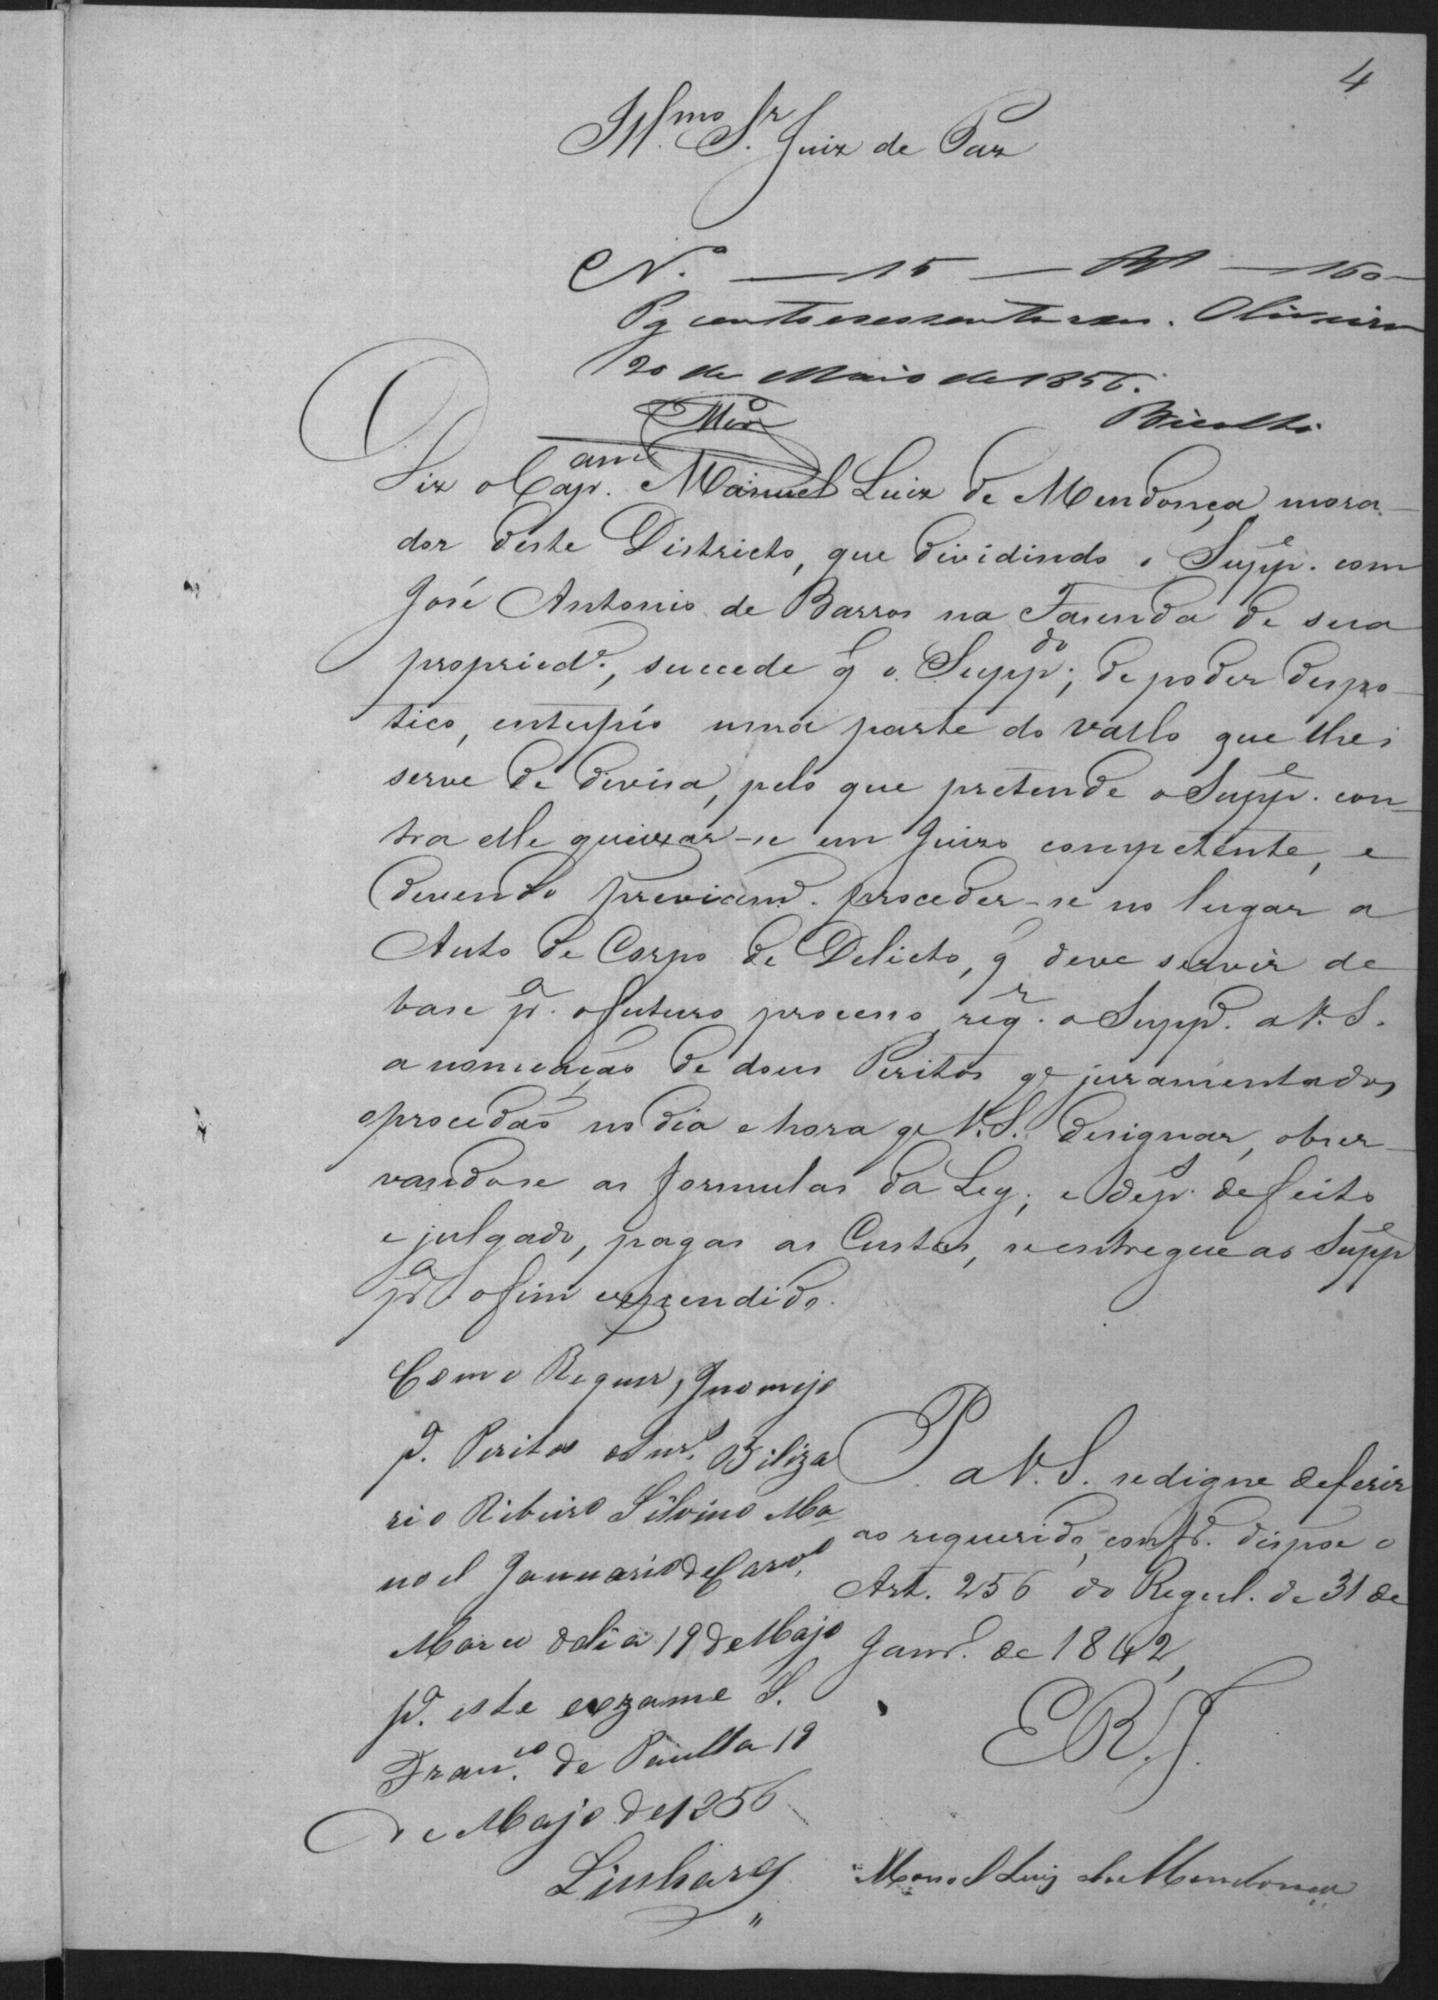 4
Ill.mo S.r Juiz de Paz
N.o — 15 — — 160 —
Pg cento e sessenta reis. Oliveira
20 de Maio de 1856.
Diz o Cap.am Manuel Luiz de Mendonça, mora-
dor deste Districto, que dividindo o Supp.e com
José Antonio de Barros na Fasenda de sua
propried.e, succede q̃ o Supp.do, de poder despo-
tico, entupio uma parte do vallo que lhes
serve de divisa, pelo que pretende o Supp.e con-
tra elle queixar-se em Juizo competente, e
devendo previam.e proceder-se no lugar a
Auto de Corpo de Delicto, q̃ deve servir de
base p.a o futuro processo, req.r o Supp.e a V. S.
a nomeação de dous Peritos q̃e juramentados
procedão no dia e hora q̃e V. S. designar, obser-
vandose as formulas da Ley; e dep.s de feito
e julgado, pagas as Custas, se entregue ao Supp.e
p.a o fim expendido.
Como Requer, Jnomejo
p.a Peritos os Snr.s Biliza
rio Ribeiro Silvino Ma
noel Januario de Carv.o
Marco odia 19 de Majo
p.a este exzame S.
Fran.co de Paulla 19
de Majo de 1856
Linhares
P. a V. S. se digne deferir
ao requerido, conf.e dispoe o
Art. 256 do Regul. de 31 de
Janr.o de 1842,
E R. J.
Manoel Luiz de Mendonça